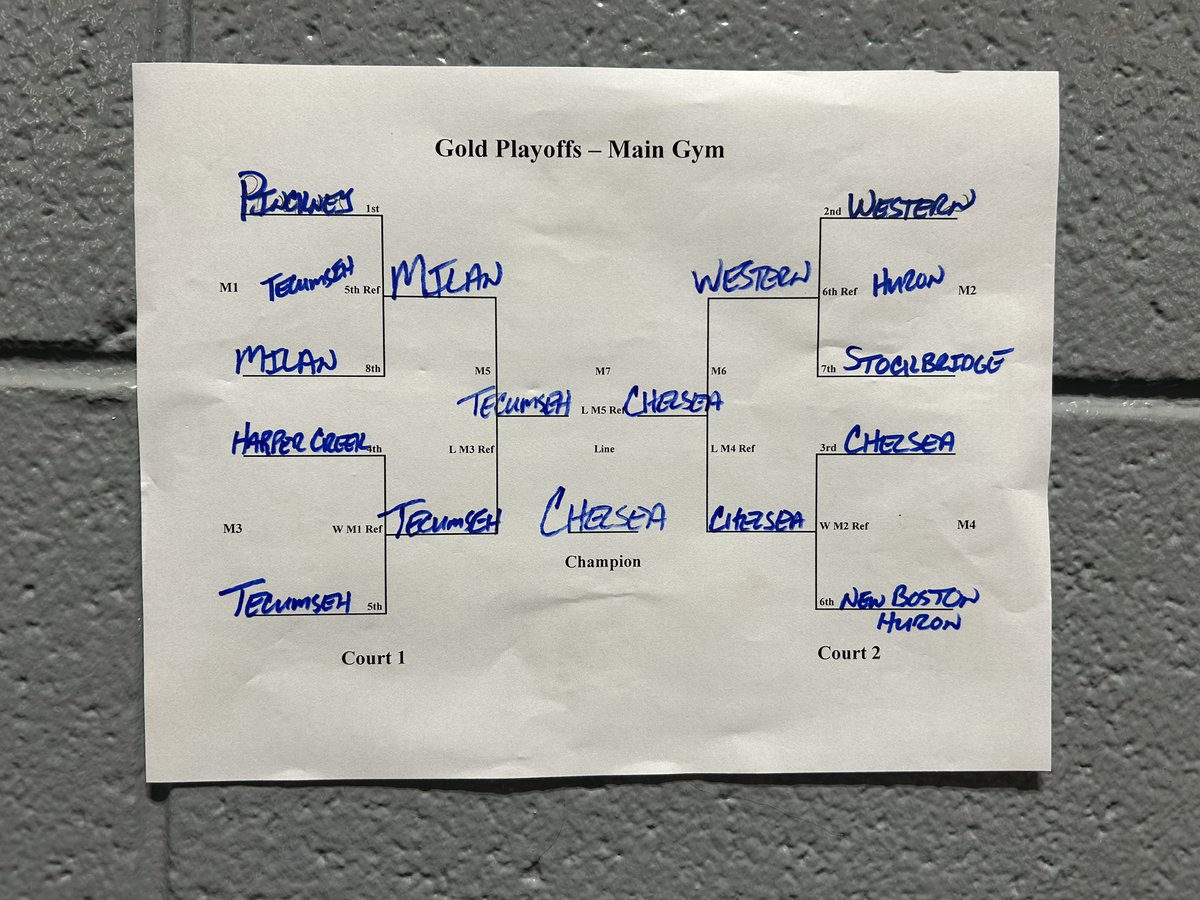 Gold Playoffs – Main Gym
PINCKNEY 1st
2nd WESTERN
M1 TECUMSEH 5th Ref MILAN
WESTERN 6th Ref HURON M2
MILAN 8th
M5 M7 M6
7th STOCKBRIDGE
TECUMSEH L M5 Ref CHELSEA
HARPER CREEK 4th
L M3 Ref Line L M4 Ref
3rd CHELSEA
M3 W M1 Ref TECUMSEH
CHELSEA
CHELSEA W M2 Ref M4
Champion
TECUMSEH 5th
6th NEW BOSTON
HURON
Court 1
Court 2